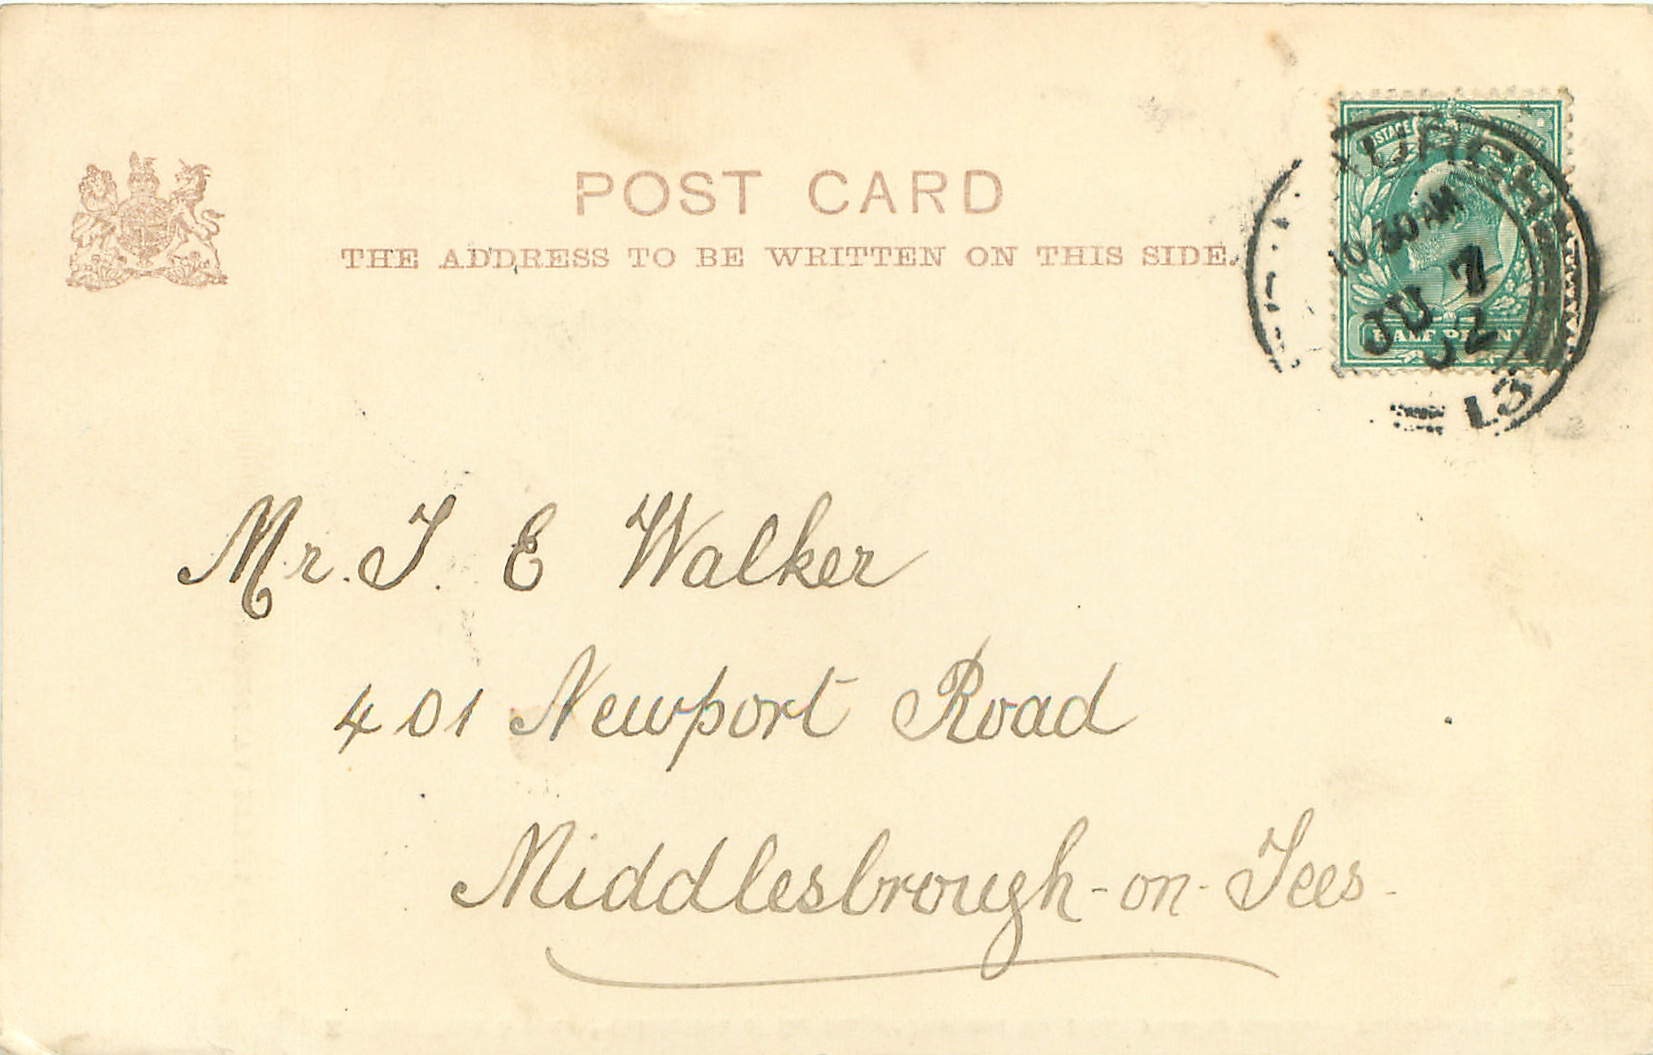 POST CARD
THE ADDRESS TO BE WRITTEN ON THIS SIDE.
HALF PENNY
10 30 AM
JU 7
02
13
Mr. T. E Walker
401 Newport Road
Middlesbrough-on-Tees